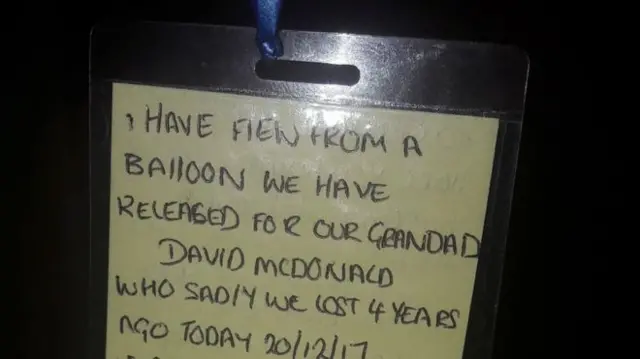 I HAVE FlEW FROM A
BAllOON WE HAVE
RELEASED FOR OUR GRANDAD
DAVID MCDONALD
WHO SADlY WE lOST 4 YEARS
AGO TODAY 20/12/17